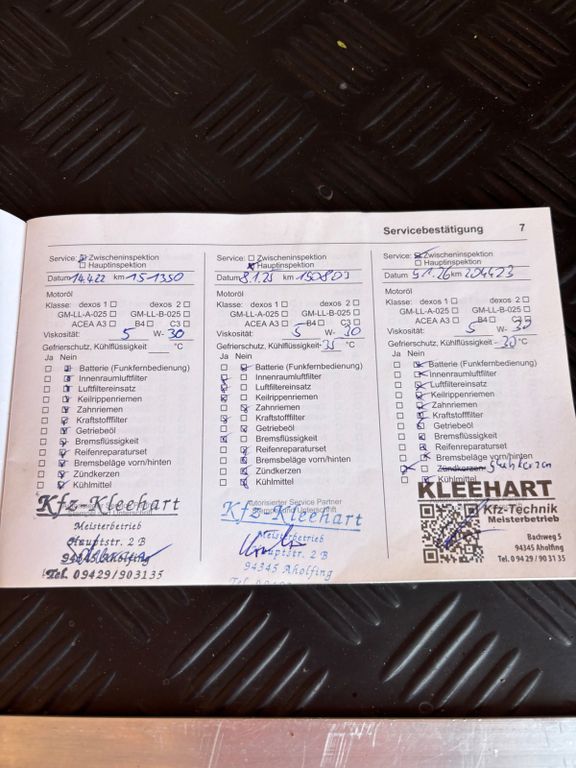 Servicebestätigung 7
Service: Zwischeninspektion
Hauptinspektion
Datum 14.4.22 km 151350
Motoröl
Klasse: dexos 1 dexos 2
GM-LL-A-025 GM-LL-B-025
ACEA A3 B4 C3
Viskosität: 5 W- 30
Gefrierschutz, Kühlflüssigkeit °C
Ja Nein
Batterie (Funkfernbedienung)
Innenraumluftfilter
Luftfiltereinsatz
Keilrippenriemen
Zahnriemen
Kraftstofffilter
Getriebeöl
Bremsflüssigkeit
Reifenreparaturset
Bremsbeläge vorn/hinten
Zündkerzen
Kühlmittel
Kfz-Kleehart
Meisterbetrieb
Hauptstr. 2 B
94345 Aholfing
Tel. 09429/903135
Service: Zwischeninspektion
Hauptinspektion
Datum 8.1.25 km
Motoröl
Klasse: dexos 1 dexos 2
GM-LL-A-025 GM-LL-B-025
ACEA A3 B4 C3
Viskosität: 5 W- 30
Gefrierschutz, Kühlflüssigkeit -35 °C
Ja Nein
Batterie (Funkfernbedienung)
Innenraumluftfilter
Luftfiltereinsatz
Keilrippenriemen
Zahnriemen
Kraftstofffilter
Getriebeöl
Bremsflüssigkeit
Reifenreparaturset
Bremsbeläge vorn/hinten
Zündkerzen
Kühlmittel
Autorisierter Service Partner
Kfz-Kleehart
Meisterbetrieb
Hauptstr. 2 B
94345 Aholfing
Service: Zwischeninspektion
Hauptinspektion
Datum km 204423
Motoröl
Klasse: dexos 1 dexos 2
GM-LL-A-025 GM-LL-B-025
ACEA A3 B4 C3
Viskosität: 5 W- 30
Gefrierschutz, Kühlflüssigkeit °C
Ja Nein
Batterie (Funkfernbedienung)
Innenraumluftfilter
Luftfiltereinsatz
Keilrippenriemen
Zahnriemen
Kraftstofffilter
Getriebeöl
Bremsflüssigkeit
Reifenreparaturset
Bremsbeläge vorn/hinten
Zündkerzen Glühkerzen
Kühlmittel
KLEEHART
Kfz-Technik
Meisterbetrieb
Bachweg 5
94345 Aholfing
Tel. 0 94 29 / 90 31 35